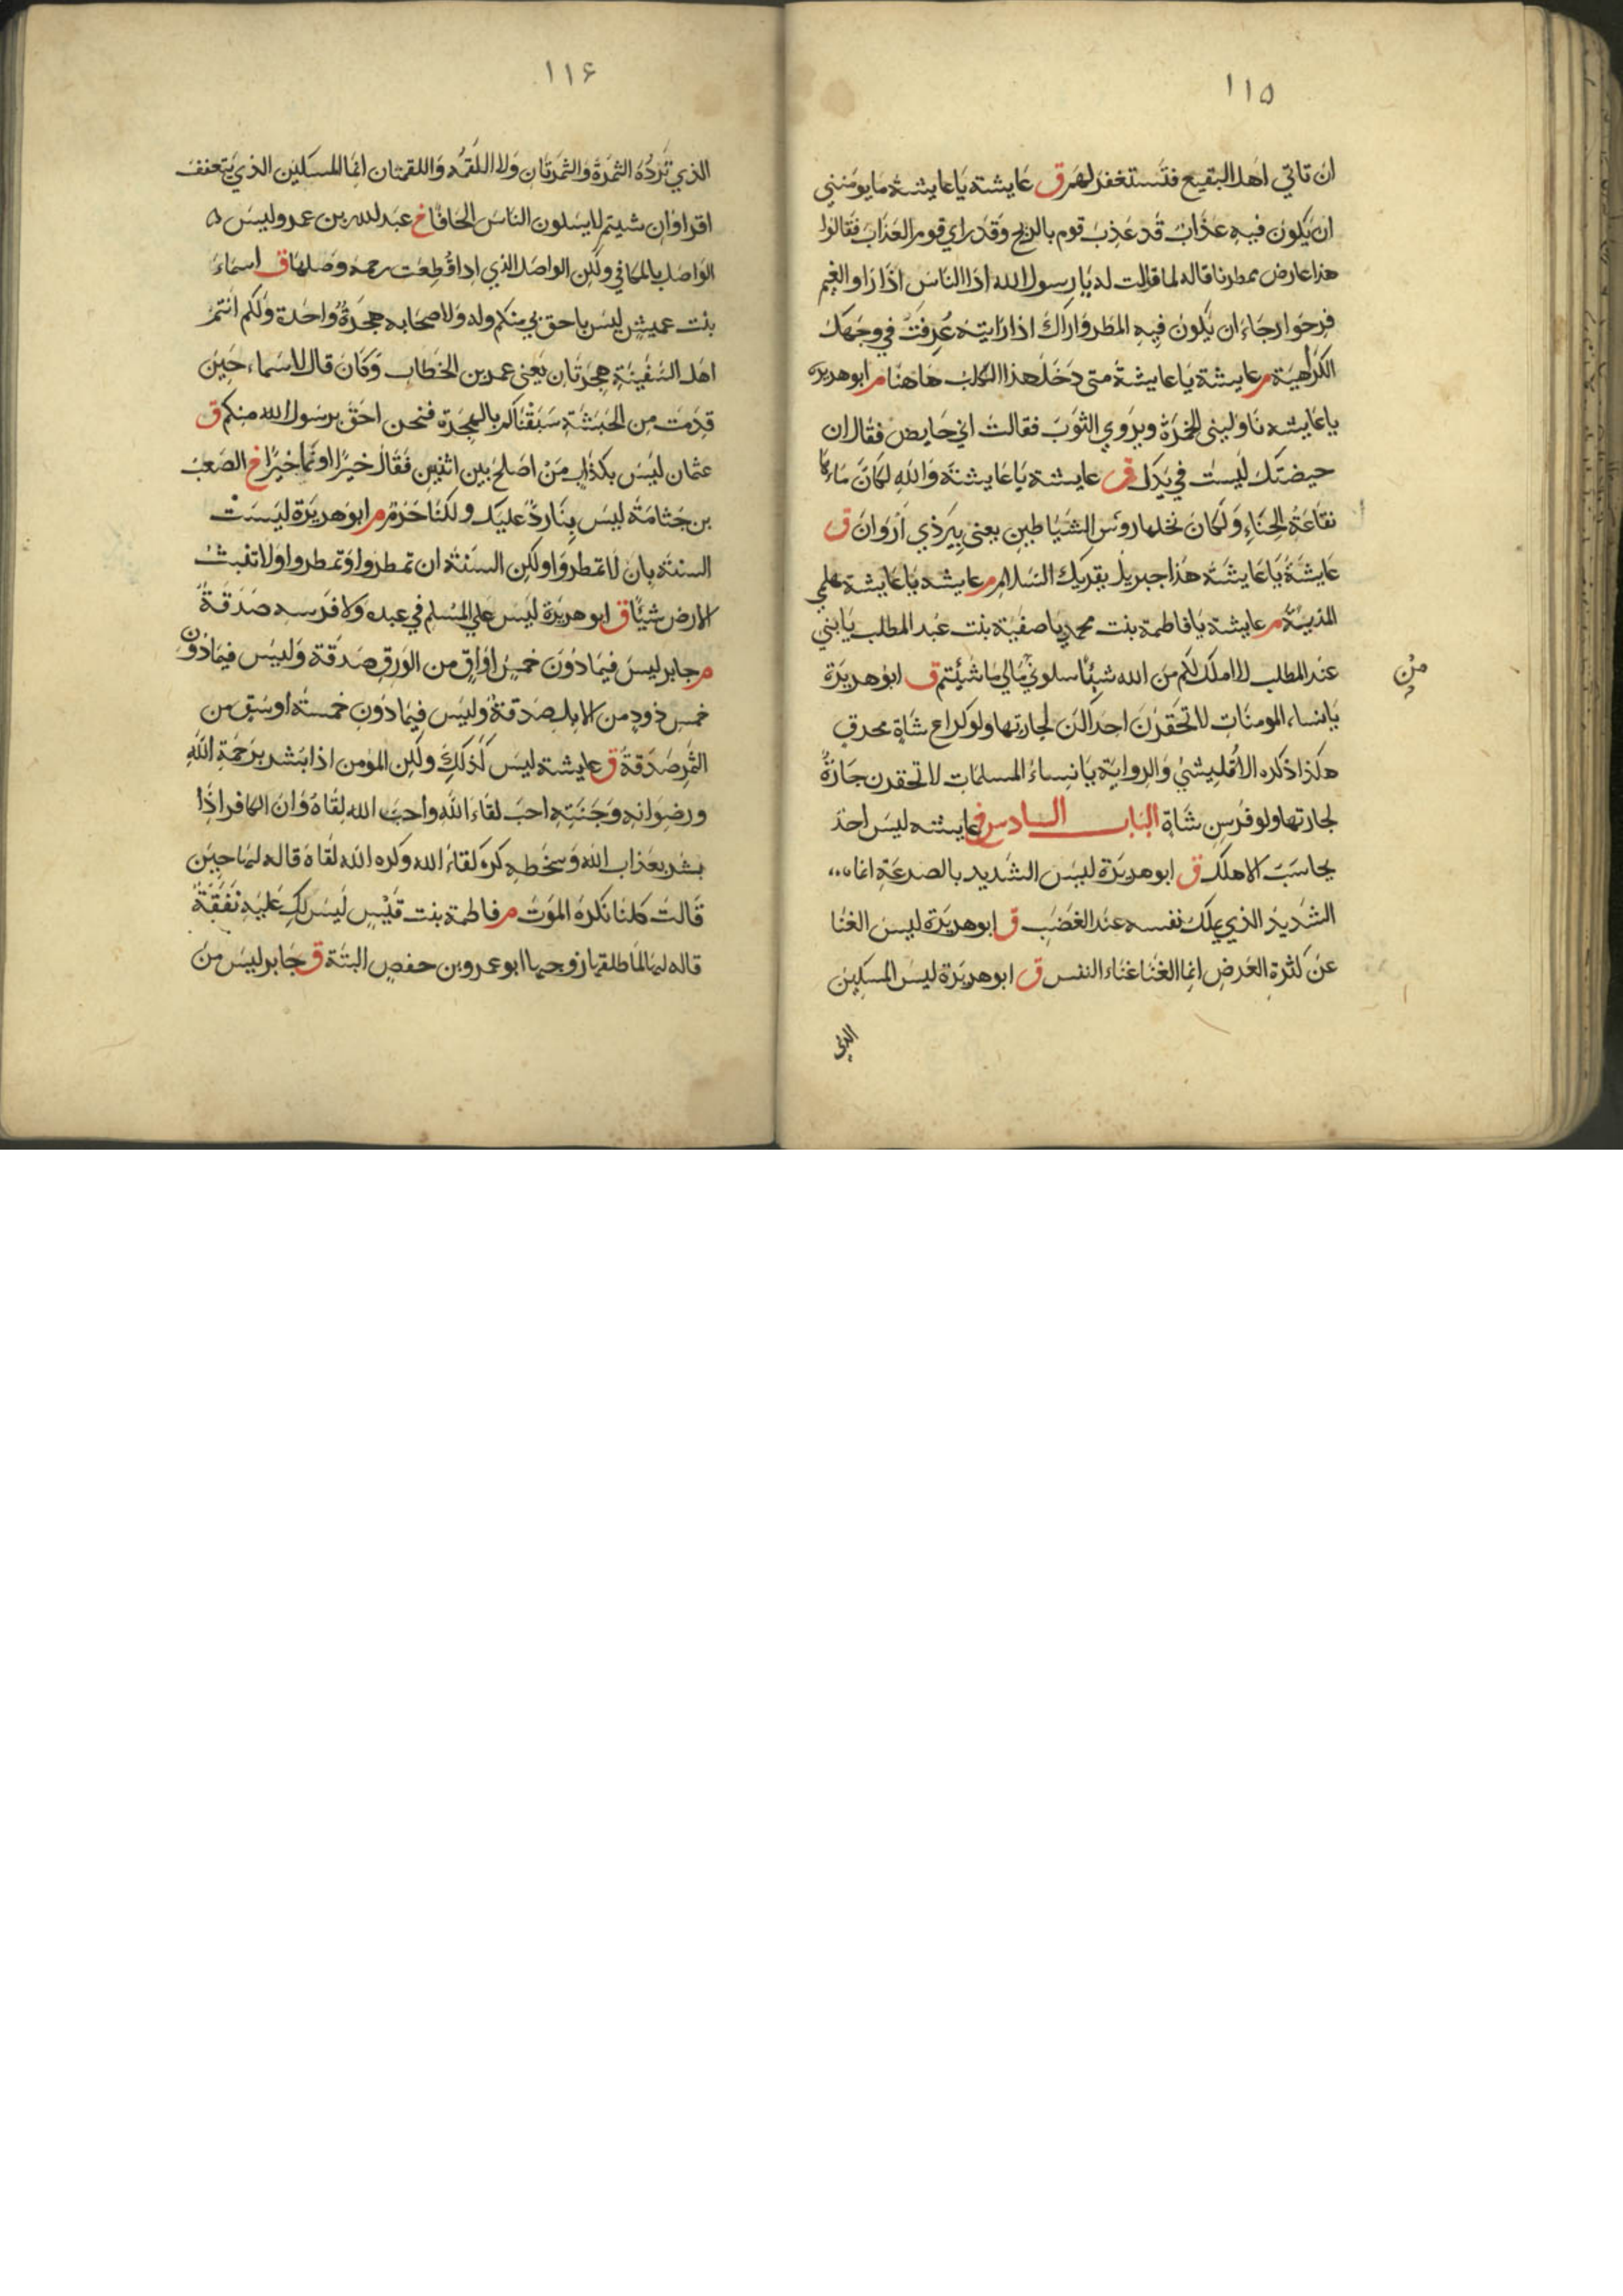 ١١٥
ان تاتي اهل البقيع فتستغفر لهم ق عايشة يا عايشة ما يومنني
ان يكون فيه عذاب قد عذب قوم بالريح وقد راي قوم العذاب فقالوا
هذا عارض ممطرنا قاله لما قالت له يا رسول الله اذا الناس اذا راوا الغيم
فرحوا رجاء ان يكون فيه المطر واراك اذا رايته عرفت في وجهك
الكراهية م عايشة يا عايشة متى دخل هذا الكلب هاهنا م ابو هريرة
يا عايشه ناوليني الخمرة ويروي الثوب فقالت اني حايض فقال ان
حيضتك ليست في يدك ق عايشة يا عايشة والله لكان ماءها
نقاعة الحناء ولكان نخلها رؤس الشياطين يعنى بير ذي اروان ق
عايشة يا عايشة هذا جبريل يقريك السلام م عايشه يا عايشة هلمي
المدية م عايشة يا فاطمة بنت محمد يا صفية بنت عبد المطلب يا بني
عبد المطلب لا املك لكم من الله شيئا سلوني مالي ما شئتم ق ابو هريرة
من
يا نساء المومنات لا تحقرن احداكن لجارتها ولو كراع شاة محرق
هكذا ذكره الاقليشي والرواية يا نساء المسلمات لا تحقرن جارة
لجارتها ولو فرسن شاة الباب السادس ق عايشه ليس احد
يحاسب الا هلك ق ابو هريرة ليس الشديد بالصرعة انما
الشديد الذي يملك نفسه عند الغضب ق ابو هريرة ليس الغنا
عن كثرة العرض انما الغنا غناء النفس ق ابو هريرة ليس المسكين
الذي
١١۶
الذي تردّه الثمرة والثمرتان ولا اللقمه واللقمتان انما المسكين الذي يتعفف
اقراوا ان شيتم لا يسلون الناس الحافا خ عبد الله بن عمرو ليس
الواصل بالمكافي ولكن الواصل الذي اذا قطعت رحمه وصلها ق اسماء
بنت عميس ليس باحق بي منكم وله ولاصحابه هجرة واحدة ولكم انتم
اهل السفينة هجرتان يعنى عمر بن الخطاب وكان قال لاسماء حين
قدمت من الحبشة سبقناكم بالهجرة فنحن احق برسول الله منكم ق
عثمان ليس بكذاب من اصلح بين اثنين فقال خيرا او نما خيرا خ الصعب
بن جثامة ليس بنا رد عليك ولكنا حرم م ابو هريرة ليست
السنة بان لا تمطروا ولكن السنة ان تمطروا وتمطروا ولا تنبت
الارض شيئا ق ابو هريرة ليس علي المسلم في عبده ولا فرسه صدقة
م جابر ليس فيما دون خمس اواق من الورق صدقة وليس فيما دون
خمس ذود من الابل صدقة وليس فيما دون خمسة اوسق من
الثمر صدقة ق عايشة ليس كذلك ولكن المؤمن اذا بشر برحمة الله
ورضوانه وجنته احب لقاء الله واحب الله لقاه وان الكافر اذا
بشر بعذاب الله وسخطه كره لقاء الله وكره الله لقاه قاله لها حين
قالت كلنا نكره الموت م فاطمة بنت قيس ليس لك عليه نفقة
قاله لها لما طلقها زوجها ابو عمرو بن حفص البتة ق جابر ليس من